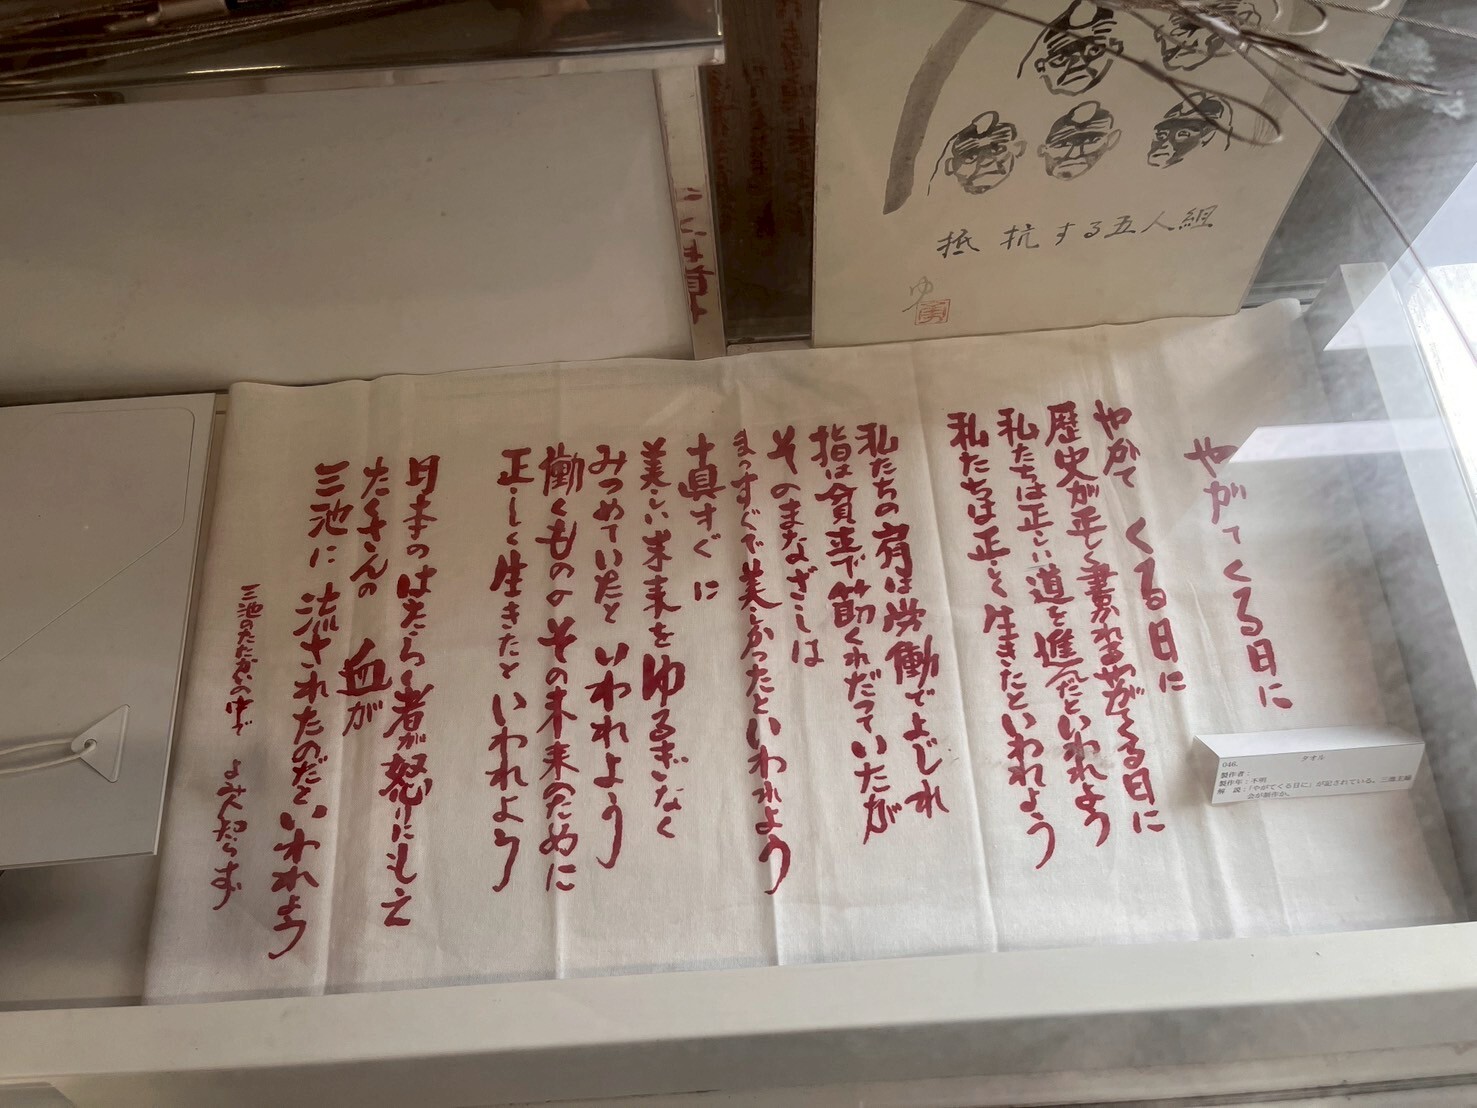 抵抗する五人組
ゆ
やがてくる日に
やがて くる日に
歴史が正しく書かれるやがてくる日に
私たちは正しい道を進んだといわれよう
私たちは正しく生きたといわれよう
私たちの肩は労働でよじれ
指は貧乏で節くれだっていたが
そのまなざしは
まっすぐで美しかったといわれよう
真すぐに
美しい未来をゆるぎなく
みつめていたと いわれよう
働くものの その未来のために
正しく生きたと いわれよう
日本のはたらく者が怒りにもえ
たくさんの 血が
三池に 流されたのだといわれよう
三池のたたかいの中で よみ人しらず
046. タオル
製作者:
製作年:不明
解 説:「やがてくる日に」が記されている。三池主婦
会が製作か。